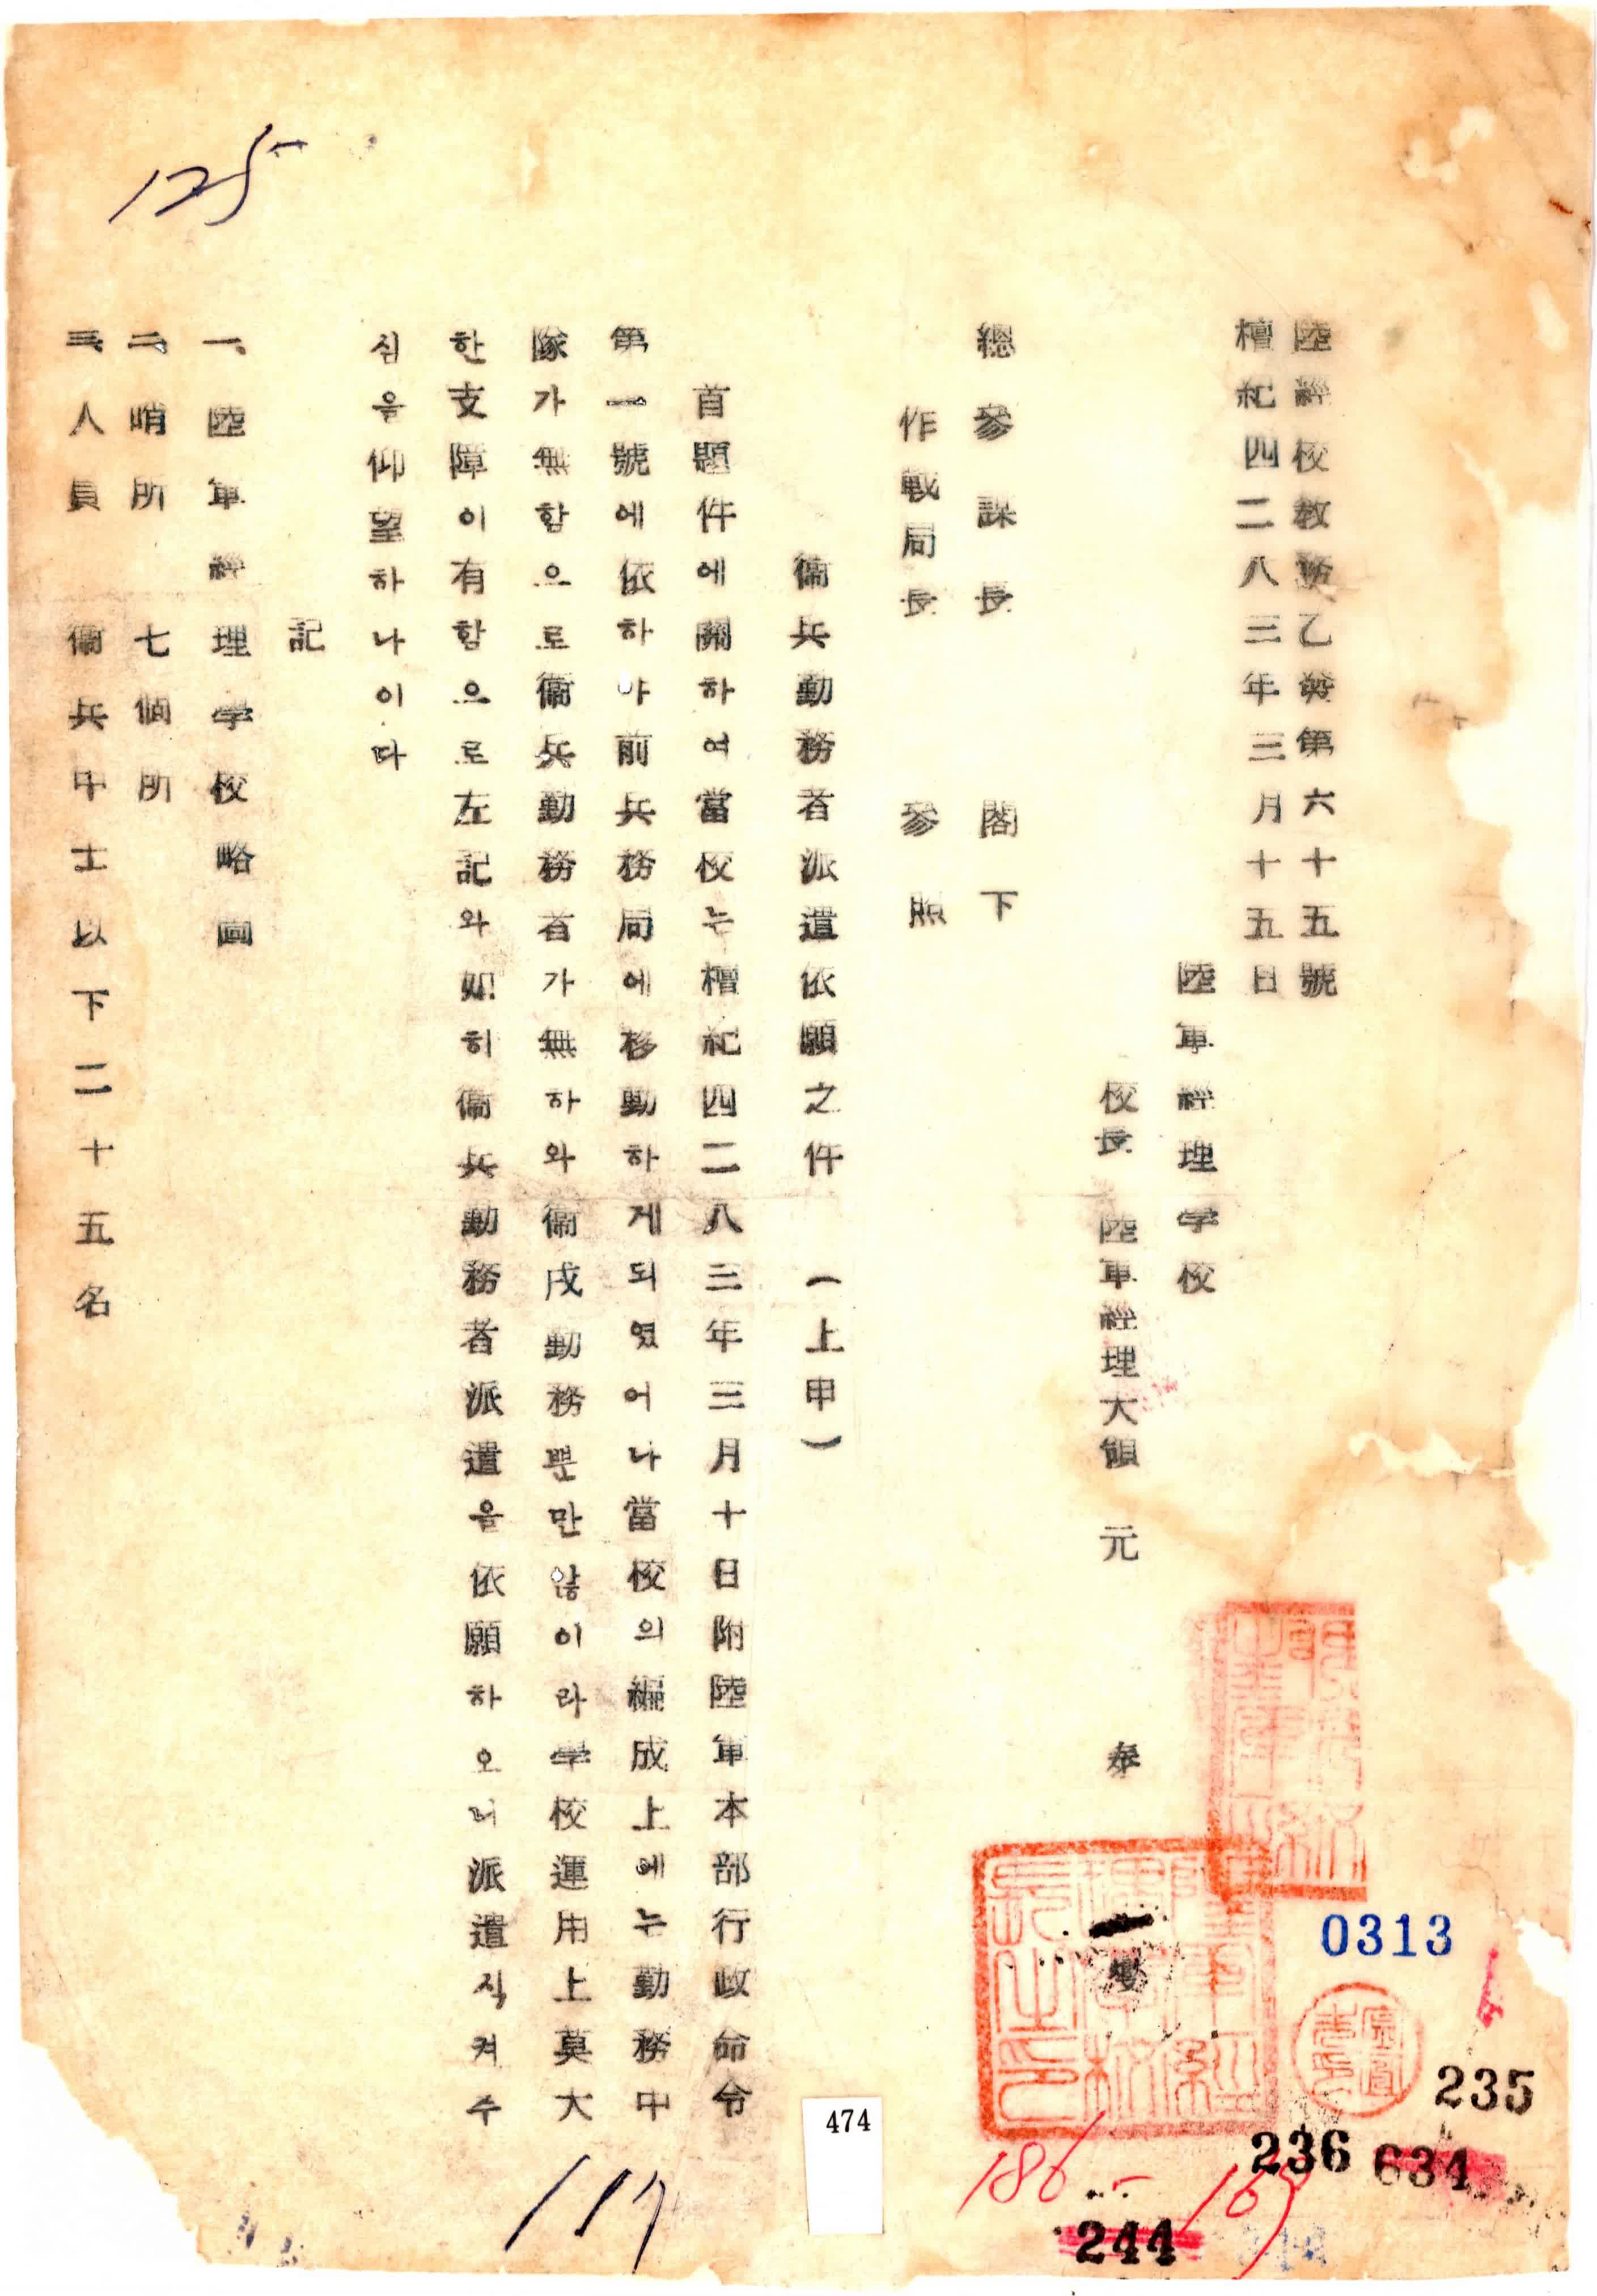 陸經校教務乙發第六十五號
檀紀四二八三年三月十五日
陸軍經理學校
校長 陸軍經理大領 元 泰 燮
總參謀長 閣下
作戰局長 參照
衛兵勤務者派遣依願之件 (上申)
首題件에關하여當校는檀紀四二八三年三月十日附陸軍本部行政命令
第一號에依하야前兵務局에移動하게되였어나當校의編成上에는勤務中
隊가無함으로衛兵勤務者가無하와衛戌勤務뿐만않이라學校運用上莫大
한支障이有함으로左記와如히衛兵勤務者派遣을依願하오니派遣식켜주
심을仰望하나이다
記
一、陸軍經理學校略圖
二、哨所 七個所
三、人員 衛兵中士以下二十五名
125
117
474
0313
235
236
634
244
186-167